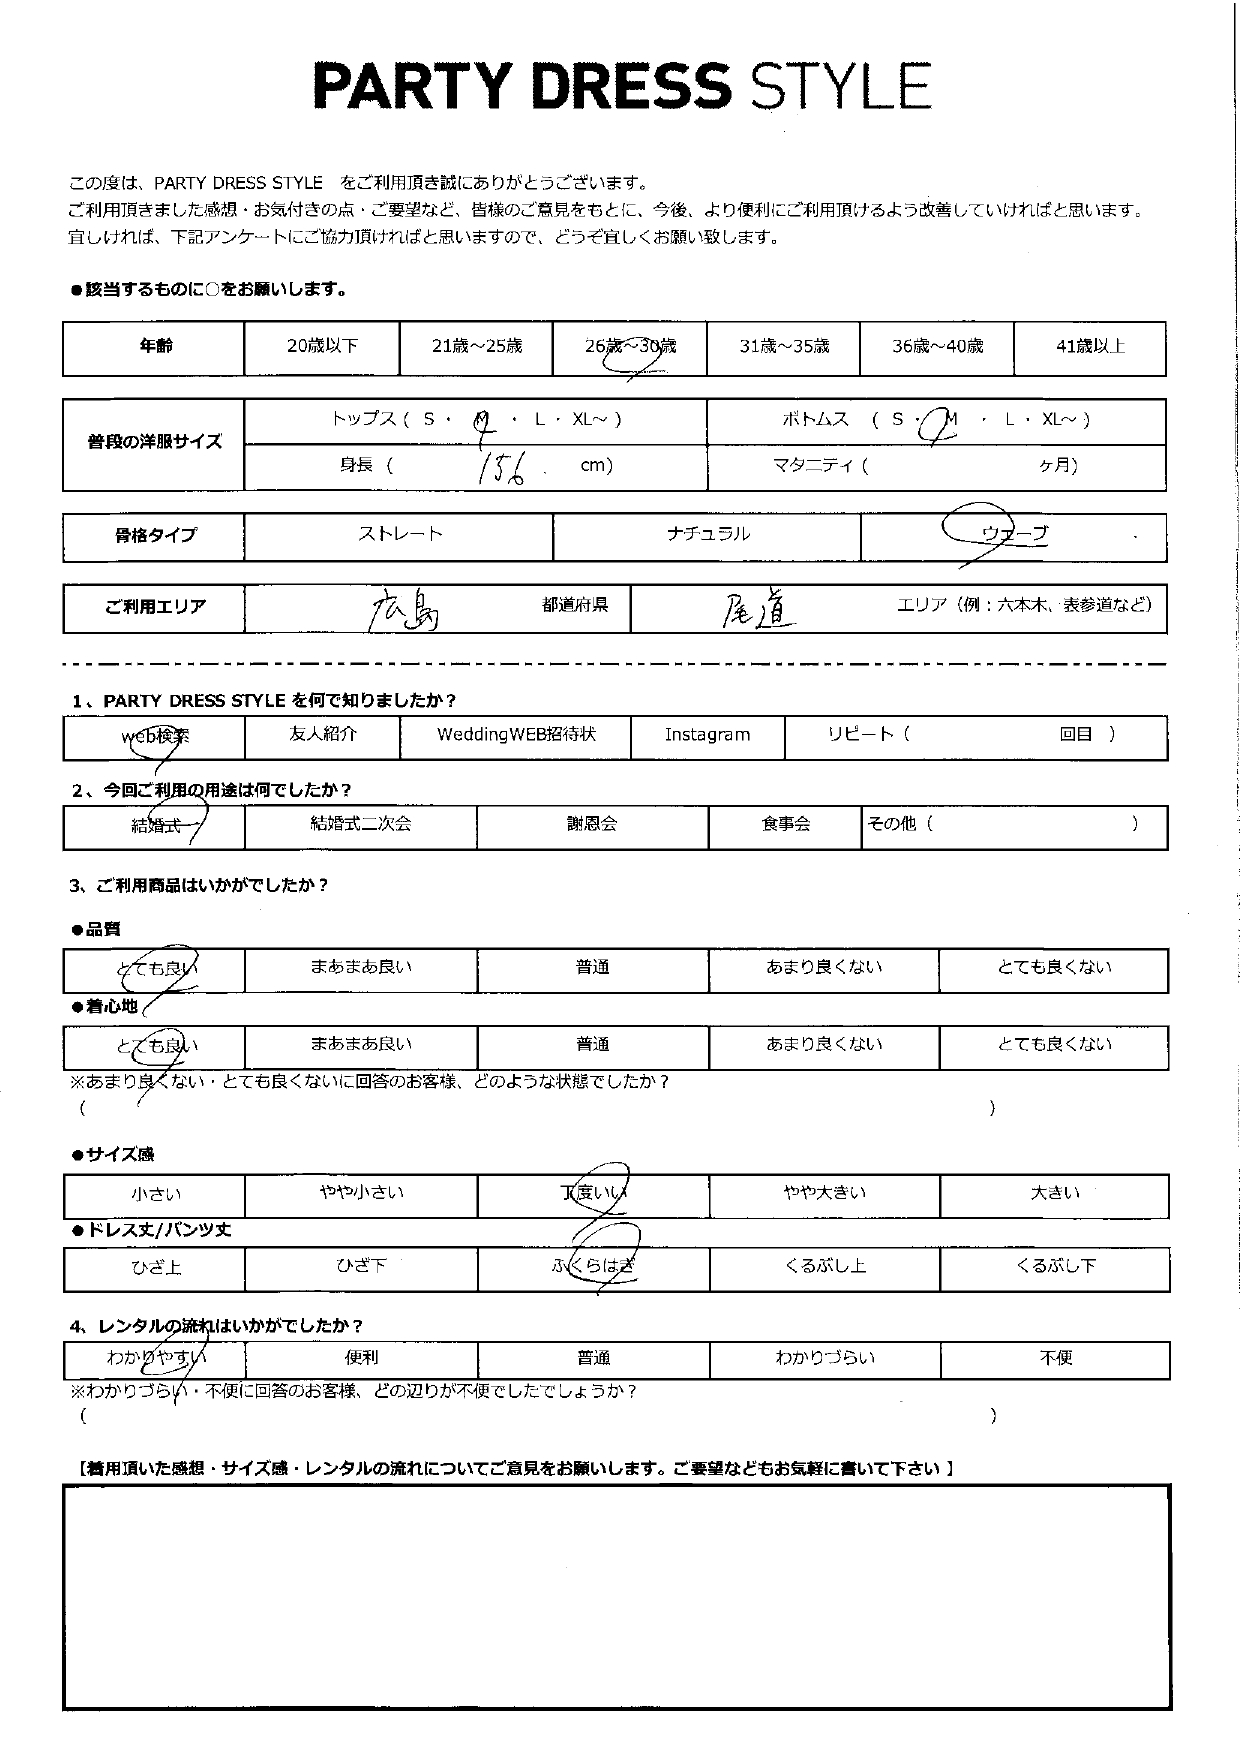 PARTY DRESS STYLE
この度は、PARTY DRESS STYLE をご利用頂き誠にありがとうございます。
ご利用頂きました感想・お気付きの点・ご要望など、皆様のご意見をもとに、今後、より便利にご利用頂けるよう改善していければと思います。
宜しければ、下記アンケートにご協力頂ければと思いますので、どうぞ宜しくお願い致します。
●該当するものに○をお願いします。
年齢 20歳以下 21歳～25歳 26歳～30歳 31歳～35歳 36歳～40歳 41歳以上
普段の洋服サイズ
トップス ( S ・ M ・ L ・ XL～ ) ボトムス ( S ・ M ・ L ・ XL～ )
身長 ( 156 cm) マタニティ ( ヶ月)
骨格タイプ ストレート ナチュラル ウェーブ
ご利用エリア 広島 都道府県 尾道 エリア（例：六本木、表参道など）
1、PARTY DRESS STYLE を何で知りましたか？
web検索 友人紹介 WeddingWEB招待状 Instagram リピート ( 回目 )
2、今回ご利用の用途は何でしたか？
結婚式 結婚式二次会 謝恩会 食事会 その他 ( )
3、ご利用商品はいかがでしたか？
●品質
とても良い まあまあ良い 普通 あまり良くない とても良くない
●着心地
とても良い まあまあ良い 普通 あまり良くない とても良くない
※あまり良くない・とても良くないに回答のお客様、どのような状態でしたか？
( )
●サイズ感
小さい やや小さい 丁度いい やや大きい 大きい
●ドレス丈/パンツ丈
ひざ上 ひざ下 ふくらはぎ くるぶし上 くるぶし下
4、レンタルの流れはいかがでしたか？
わかりやすい 便利 普通 わかりづらい 不便
※わかりづらい・不便に回答のお客様、どの辺りが不便でしたでしょうか？
( )
【着用頂いた感想・サイズ感・レンタルの流れについてご意見をお願いします。ご要望などもお気軽に書いて下さい 】